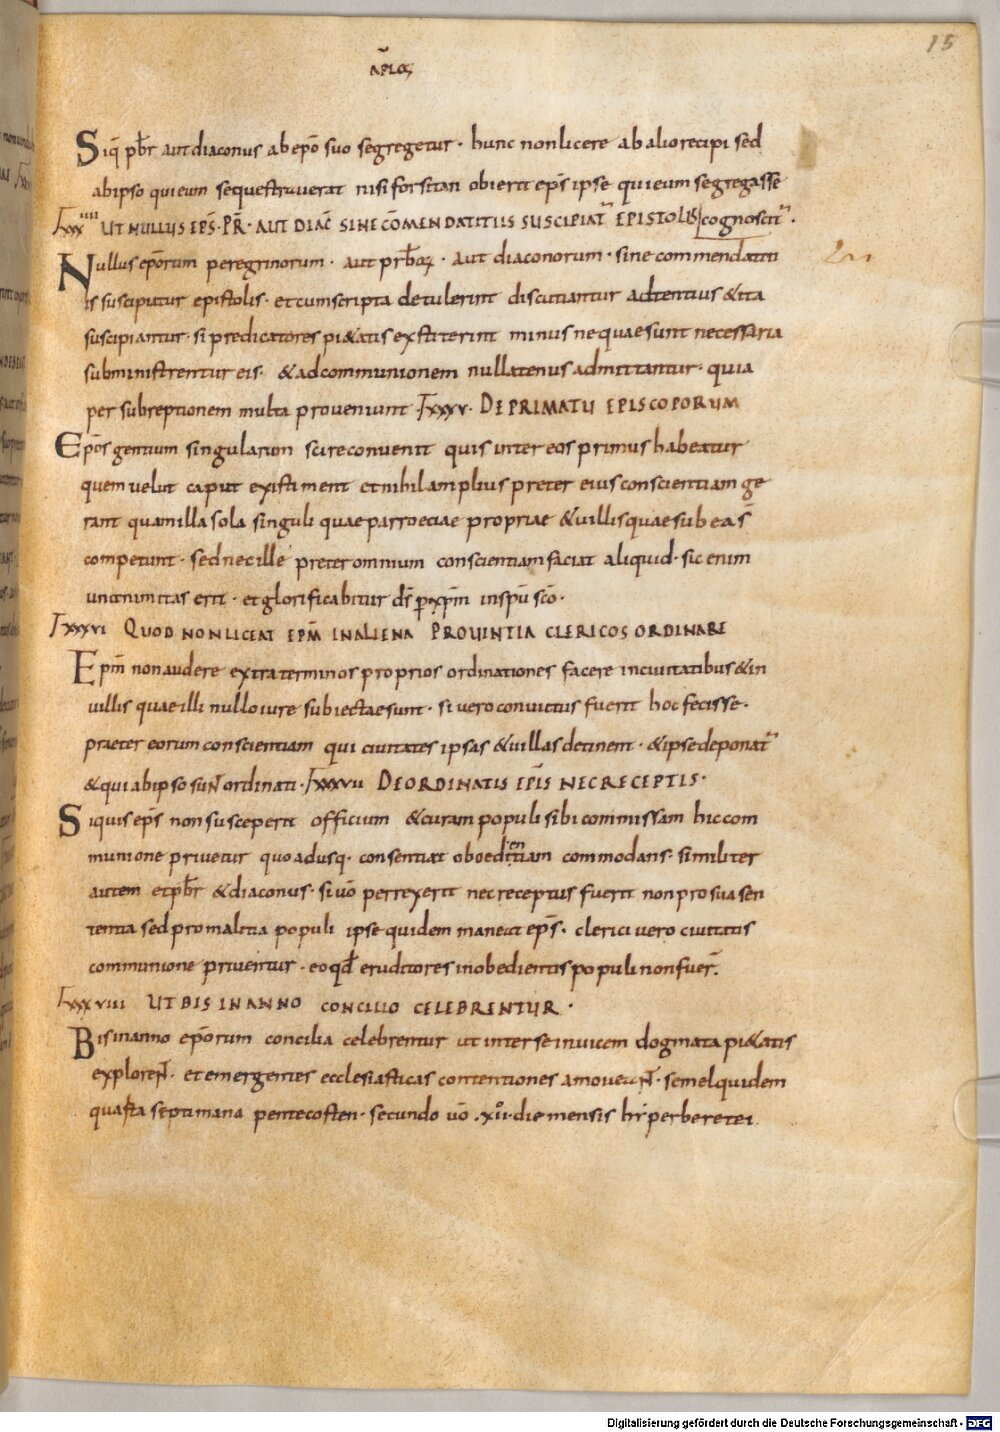 15
ap̄los
Siq̄ pb̄r aut diaconus ab ep̄o suo segregetur · hunc non licere ab alio recipi sed
ab ipso qui eum sequestraverat nisi forsitan obierit ep̄s ipse qui eum segregasse
cognoscit͛ ·
xxxIIII UT NULLUS EP̄S · PR̄ · AUT DIAC̄ SINE CŌMENDATITIIS SUSCIPIAT͛ EPISTOLIS
Nullus ep̄orum peregrinorum · aut prb̄oꝝ · aut diaconorum · sine commendatiti
is suscipiatur epistolis · et cum scripta detulerint discutiantur adtentius & ita
suscipiantur · si predicatores pi&atis exstiterint minus ne quae sunt necessaria
subministrentur eis · & ad communionem nullatenus admittantur · quia
per subreptionem multa proveniunt · xxxv · DE PRIMATU EPISCOPORUM
Ep̄os gentium singularum scire convenit quis inter eos primus habeatur
quem velut caput existiment et nihil amplius preter eius conscientiam ge
rant quam illa sola singuli quae parroeciae propriae & villis quae sub ea s̄
competunt · sed nec ille preter omnium conscientiam faciat aliquid · sic enim
unanimitas erit · et glorificabitur d̄s ꝑ xp̄m in sp̄u sc̄o ·
xxxvi QUOD NON LICEAT EPM̄ IN ALIENA PROVINTIA CLERICOS ORDINARE
Epm̄ non audere extra terminos proprios ordinationes facere in civitatibus & in
villis quae illi nullo iure subiectae sunt · si vero convictus fuerit hoc fecisse ·
praeter eorum conscientiam qui civitates ipsas & villas detinent · & ipse deponat͛
& qui ab ipso sunt ordinati · xxxvii DE ORDINATIS EPĪS NEC RECEPTIS ·
Siquis ep̄s non susceperit officium & curam populi sibi commissam hic com
munione privetur quoadusq · consentiat oboedientiam commodans · similiter
autem et pb̄r & diaconus · si vō perrexerit nec receptus fuerit non pro sua sen
tentia sed pro malitia populi ipse quidem maneat ep̄s · clerici vero civitatis
communione priventur · eo qd̄ eruditores inobedientis populi non fuer̄ ·
xxxviii UT BIS IN ANNO CONCILIO CELEBRENTUR ·
Bis in anno ep̄orum concilia celebrentur ut inter se invicem dogmata pi&atis
explorent · et emergentes ecclesiasticas contentiones amoveant · semel quidem
quarta septimana pentecosten · secundo vō · xii · die mensis hiperberetei
Digitalisierung gefördert durch die Deutsche Forschungsgemeinschaft - DFG